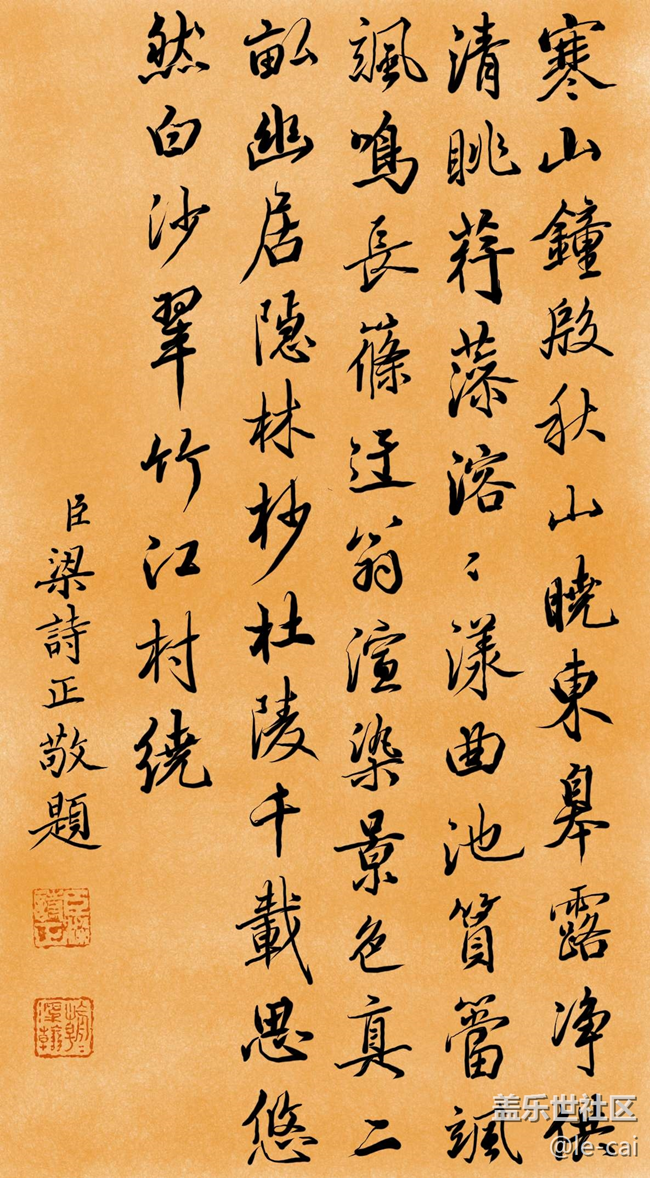 寒山鐘殷秋山曉東皋露淨供
清眺荇藻溶〻漾曲池篔簹颯
颯鳴長篠迂翁渲染景色真二
畝幽居隱林杪杜陵千載思悠
然白沙翠竹江村繞
臣梁詩正敬題
盖乐世社区
@le-cai